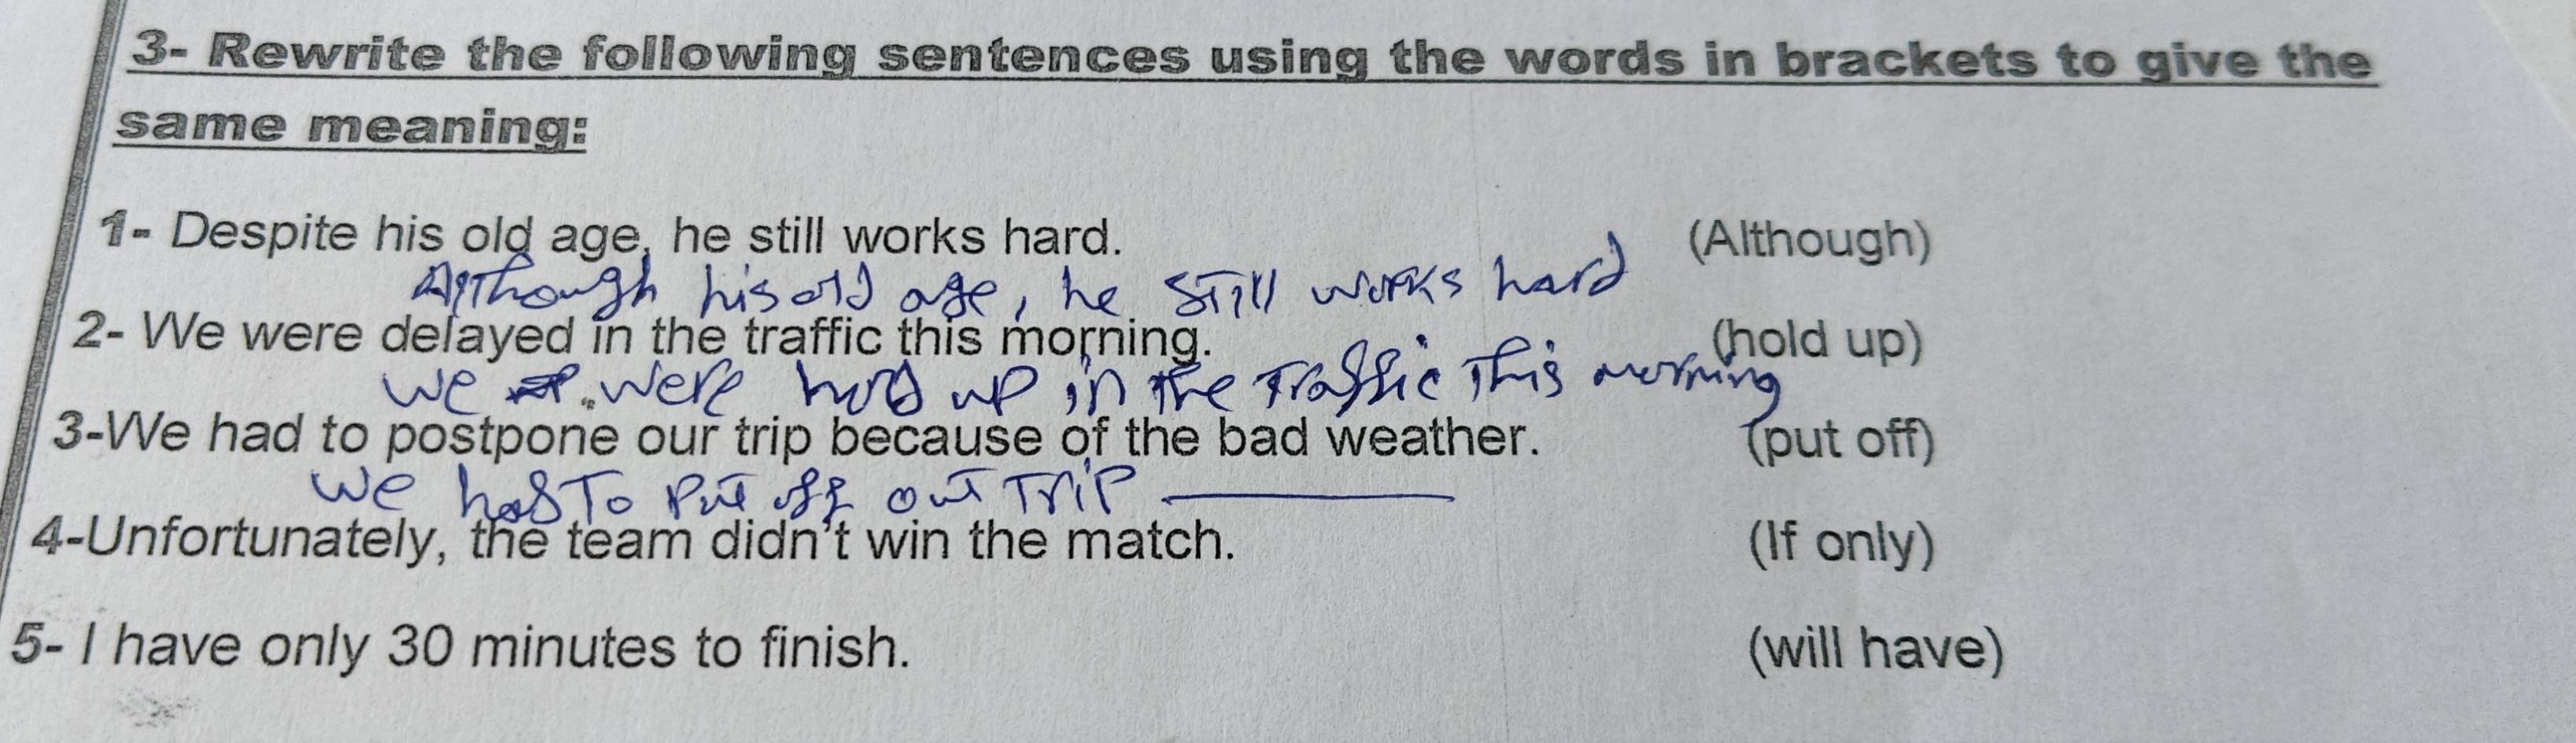 3- Rewrite the following sentences using the words in brackets to give the
same meaning:
1- Despite his old age, he still works hard. (Although)
Although his old age, he still works hard
2- We were delayed in the traffic this morning. (hold up)
we were hold up in the traffic this morning
3-We had to postpone our trip because of the bad weather. (put off)
we had To Put off out Trip
4-Unfortunately, the team didn't win the match. (If only)
5- I have only 30 minutes to finish. (will have)